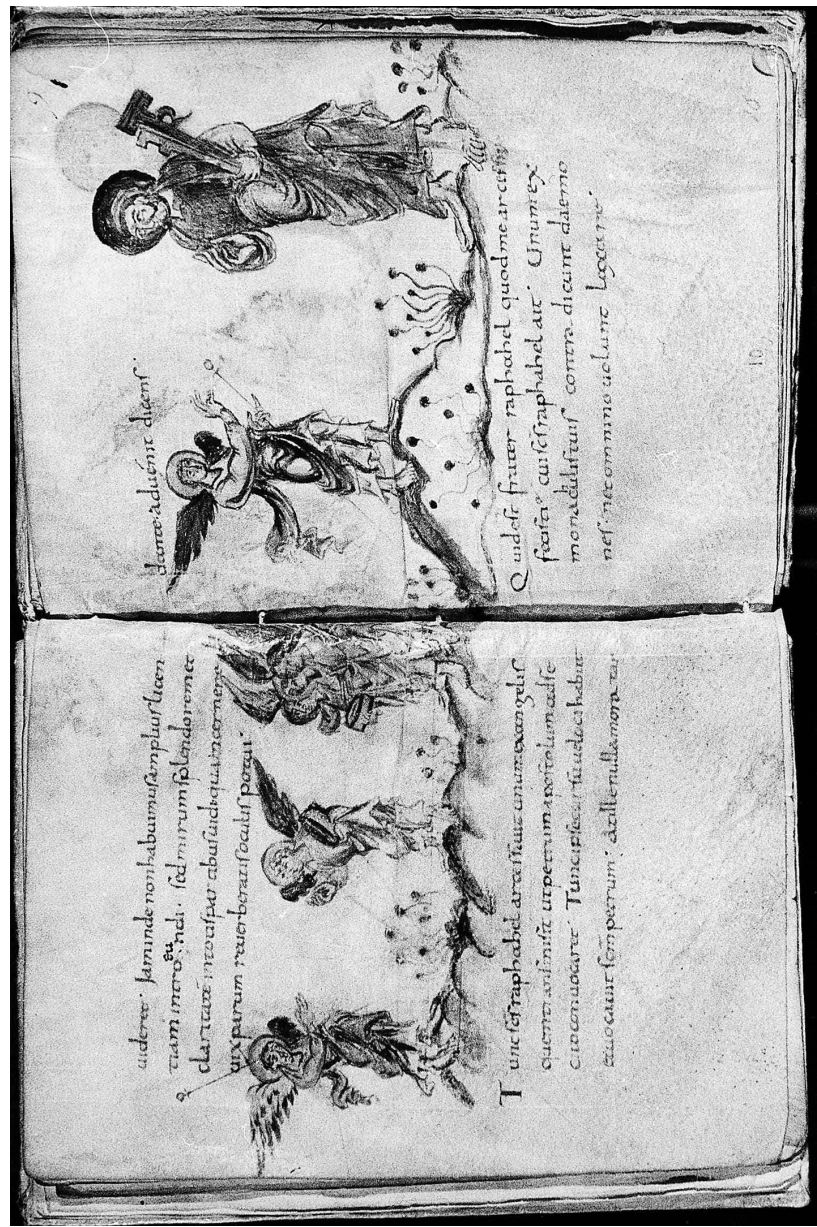 uideret · Iam inde non habuimus amplius licen
tiam intro eu ndi · sed mirum splendorem et
claritatē totis partibus uidi quam cernere
uix parum reuerberatis oculis potui ·
Tunc scs raphahel arcessiuit unum ex angelis
quem transmisit ut petrum apostolum ad se
cito conuocaret · Tunc ipse cursu ueloci habiit
& uocauit scm petrum · at ille nulla mora tar
dante · aduenit dicens ·
Quid est frater raphahel quod me
fecisti · cui scs raphahel ait · Unum ex
monachulis tuis contra dicunt daemo
nes nec omnino uolunt laxare ·
10